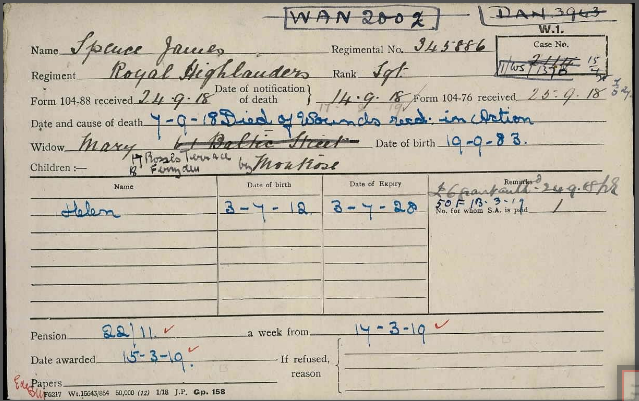 WAN 2002
DAN. 3963
W.1.
Name Spence James Regimental No. 345886
Case No.
Regiment Royal Highlanders Rank Sgt
Form 104-88 received 24-9-18 Date of notification of death 14-9-18 Form 104-76 received 25-9-18
Date and cause of death 7-9-18 Died of Wounds recd. in Action
Widow Mary 61 Baltic Street Date of birth 19-9-83.
Rossie Terrace
Ferryden by Montrose
Children :—
Name Date of birth Date of Expiry Remarks
Helen 3-7-12 3-7-28
50F 13-3-19
No. for whom S.A. is paid 1
Pension 22/11 a week from 17-3-19
Date awarded 15-3-19. If refused, reason
Papers
F6217 Wt.15643/854 50,000 (12) 1/18 J.P. Gp. 158